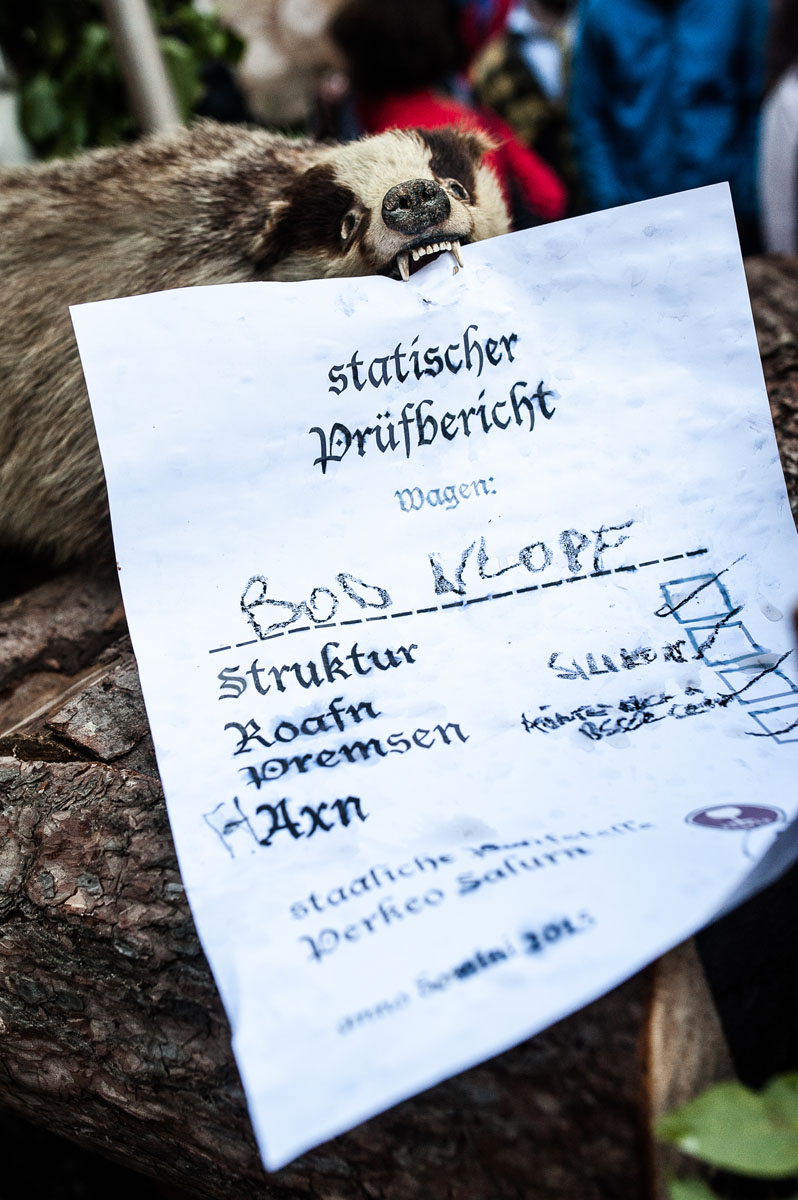 statischer
Prüfbericht
Wagen:
BOD KLOPF
Struktur
Roafn
Premsen
HAxn
staatliche
Perkeo Salurn
anno domini 2015